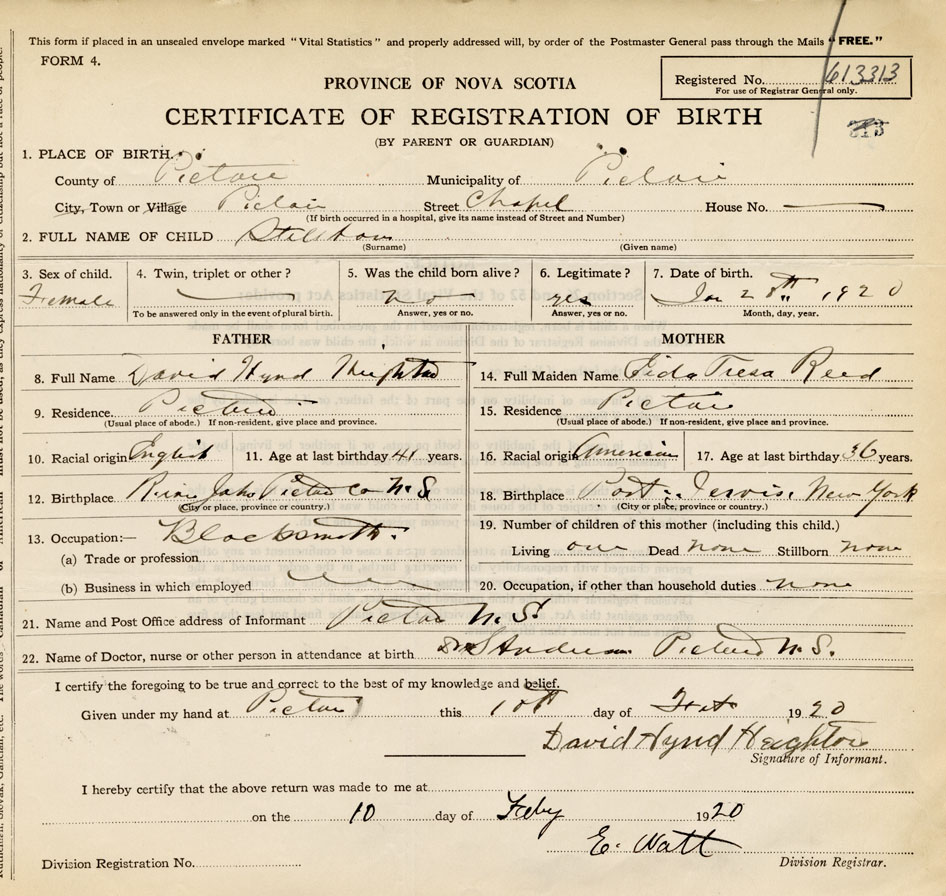 This form if placed in an unsealed envelope marked "Vital Statistics" and properly addressed will, by order of the Postmaster General pass through the Mails "FREE."
FORM 4.
Registered No. 613313
For use of Registrar General only.
PROVINCE OF NOVA SCOTIA
CERTIFICATE OF REGISTRATION OF BIRTH
(BY PARENT OR GUARDIAN)
1. PLACE OF BIRTH.
County of Pictou Municipality of Pictou
City, Town or Village Pictou Street Chapel House No.
(If birth occurred in a hospital, give its name instead of Street and Number)
2. FULL NAME OF CHILD Stillborn
(Surname) (Given name)
3. Sex of child. 4. Twin, triplet or other? 5. Was the child born alive? 6. Legitimate? 7. Date of birth.
Female no yes Jan 28th 1920
To be answered only in the event of plural birth. Answer, yes or no. Answer, yes or no. Month, day, year.
FATHER MOTHER
8. Full Name David Hynd Heighton 14. Full Maiden Name Tresa Reed
9. Residence. Pictou 15. Residence Pictou
(Usual place of abode.) If non-resident, give place and province. (Usual place of abode.) If non-resident, give place and province.
10. Racial origin English 11. Age at last birthday 41 years. 16. Racial origin American 17. Age at last birthday 36 years.
12. Birthplace River John Pictou Co N.S. 18. Birthplace Port Jervis, New York
(City or place, province or country.) (City or place, province or country.)
13. Occupation:— Blacksmith. 19. Number of children of this mother (including this child.)
(a) Trade or profession Living one Dead none Stillborn none
(b) Business in which employed 20. Occupation, if other than household duties none
21. Name and Post Office address of Informant Pictou N.S.
22. Name of Doctor, nurse or other person in attendance at birth Pictou N.S.
I certify the foregoing to be true and correct to the best of my knowledge and belief.
Given under my hand at Pictou this 10th day of Feb 1920
David Hynd Heighton
Signature of Informant.
I hereby certify that the above return was made to me at
on the 10 day of Feby 1920
E. Watt
Division Registration No. Division Registrar.